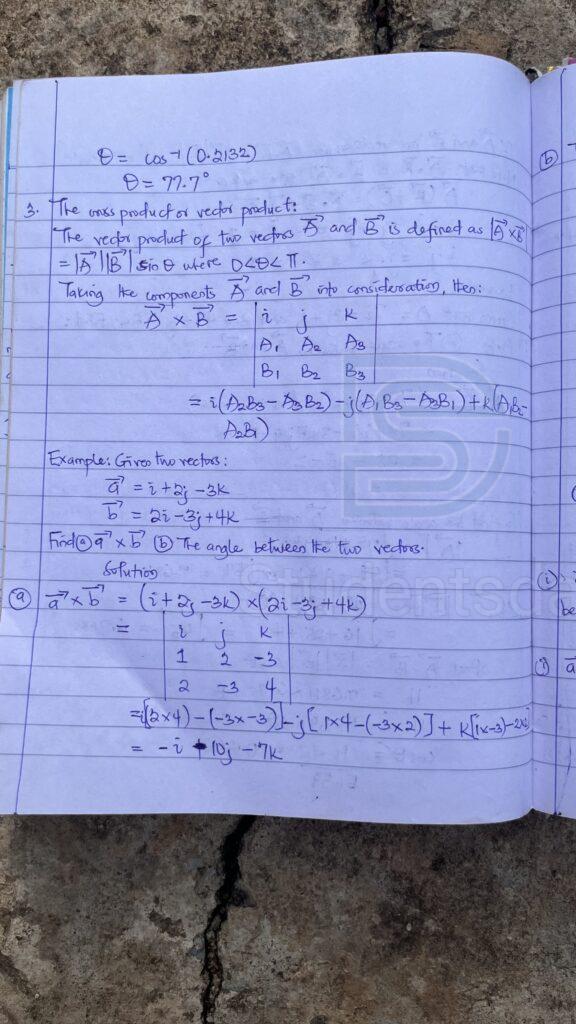 θ = cos⁻¹(0.2132)
θ = 77.7°
3. The cross product or vector product:
The vector product of two vectors A⃗ and B⃗ is defined as |A⃗ × B⃗|
= |A⃗||B⃗| sin θ where 0<θ<π.
Taking the components A⃗ and B⃗ into consideration, then:
A⃗ × B⃗ = | i j k |
| A₁ A₂ A₃ |
| B₁ B₂ B₃ |
= i(A₂B₃ – A₃B₂) – j(A₁B₃ – A₃B₁) + k(A₁B₂ –
A₂B₁)
Example: Given two vectors:
a⃗ = i + 2j – 3k
b⃗ = 2i – 3j + 4k
Find ⓐ a⃗ × b⃗ ⓑ The angle between the two vectors.
Solution
ⓐ a⃗ × b⃗ = (i + 2j – 3k) × (2i – 3j + 4k)
= | i j k |
| 1 2 –3 |
| 2 –3 4 |
= i[(2×4) – (–3×–3)] – j[1×4 – (–3×2)] + k[1×–3) – 2×2]
= –i – 10j – 7k
Students
ⓑ
ⓘ
be
ⓘ
a⃗